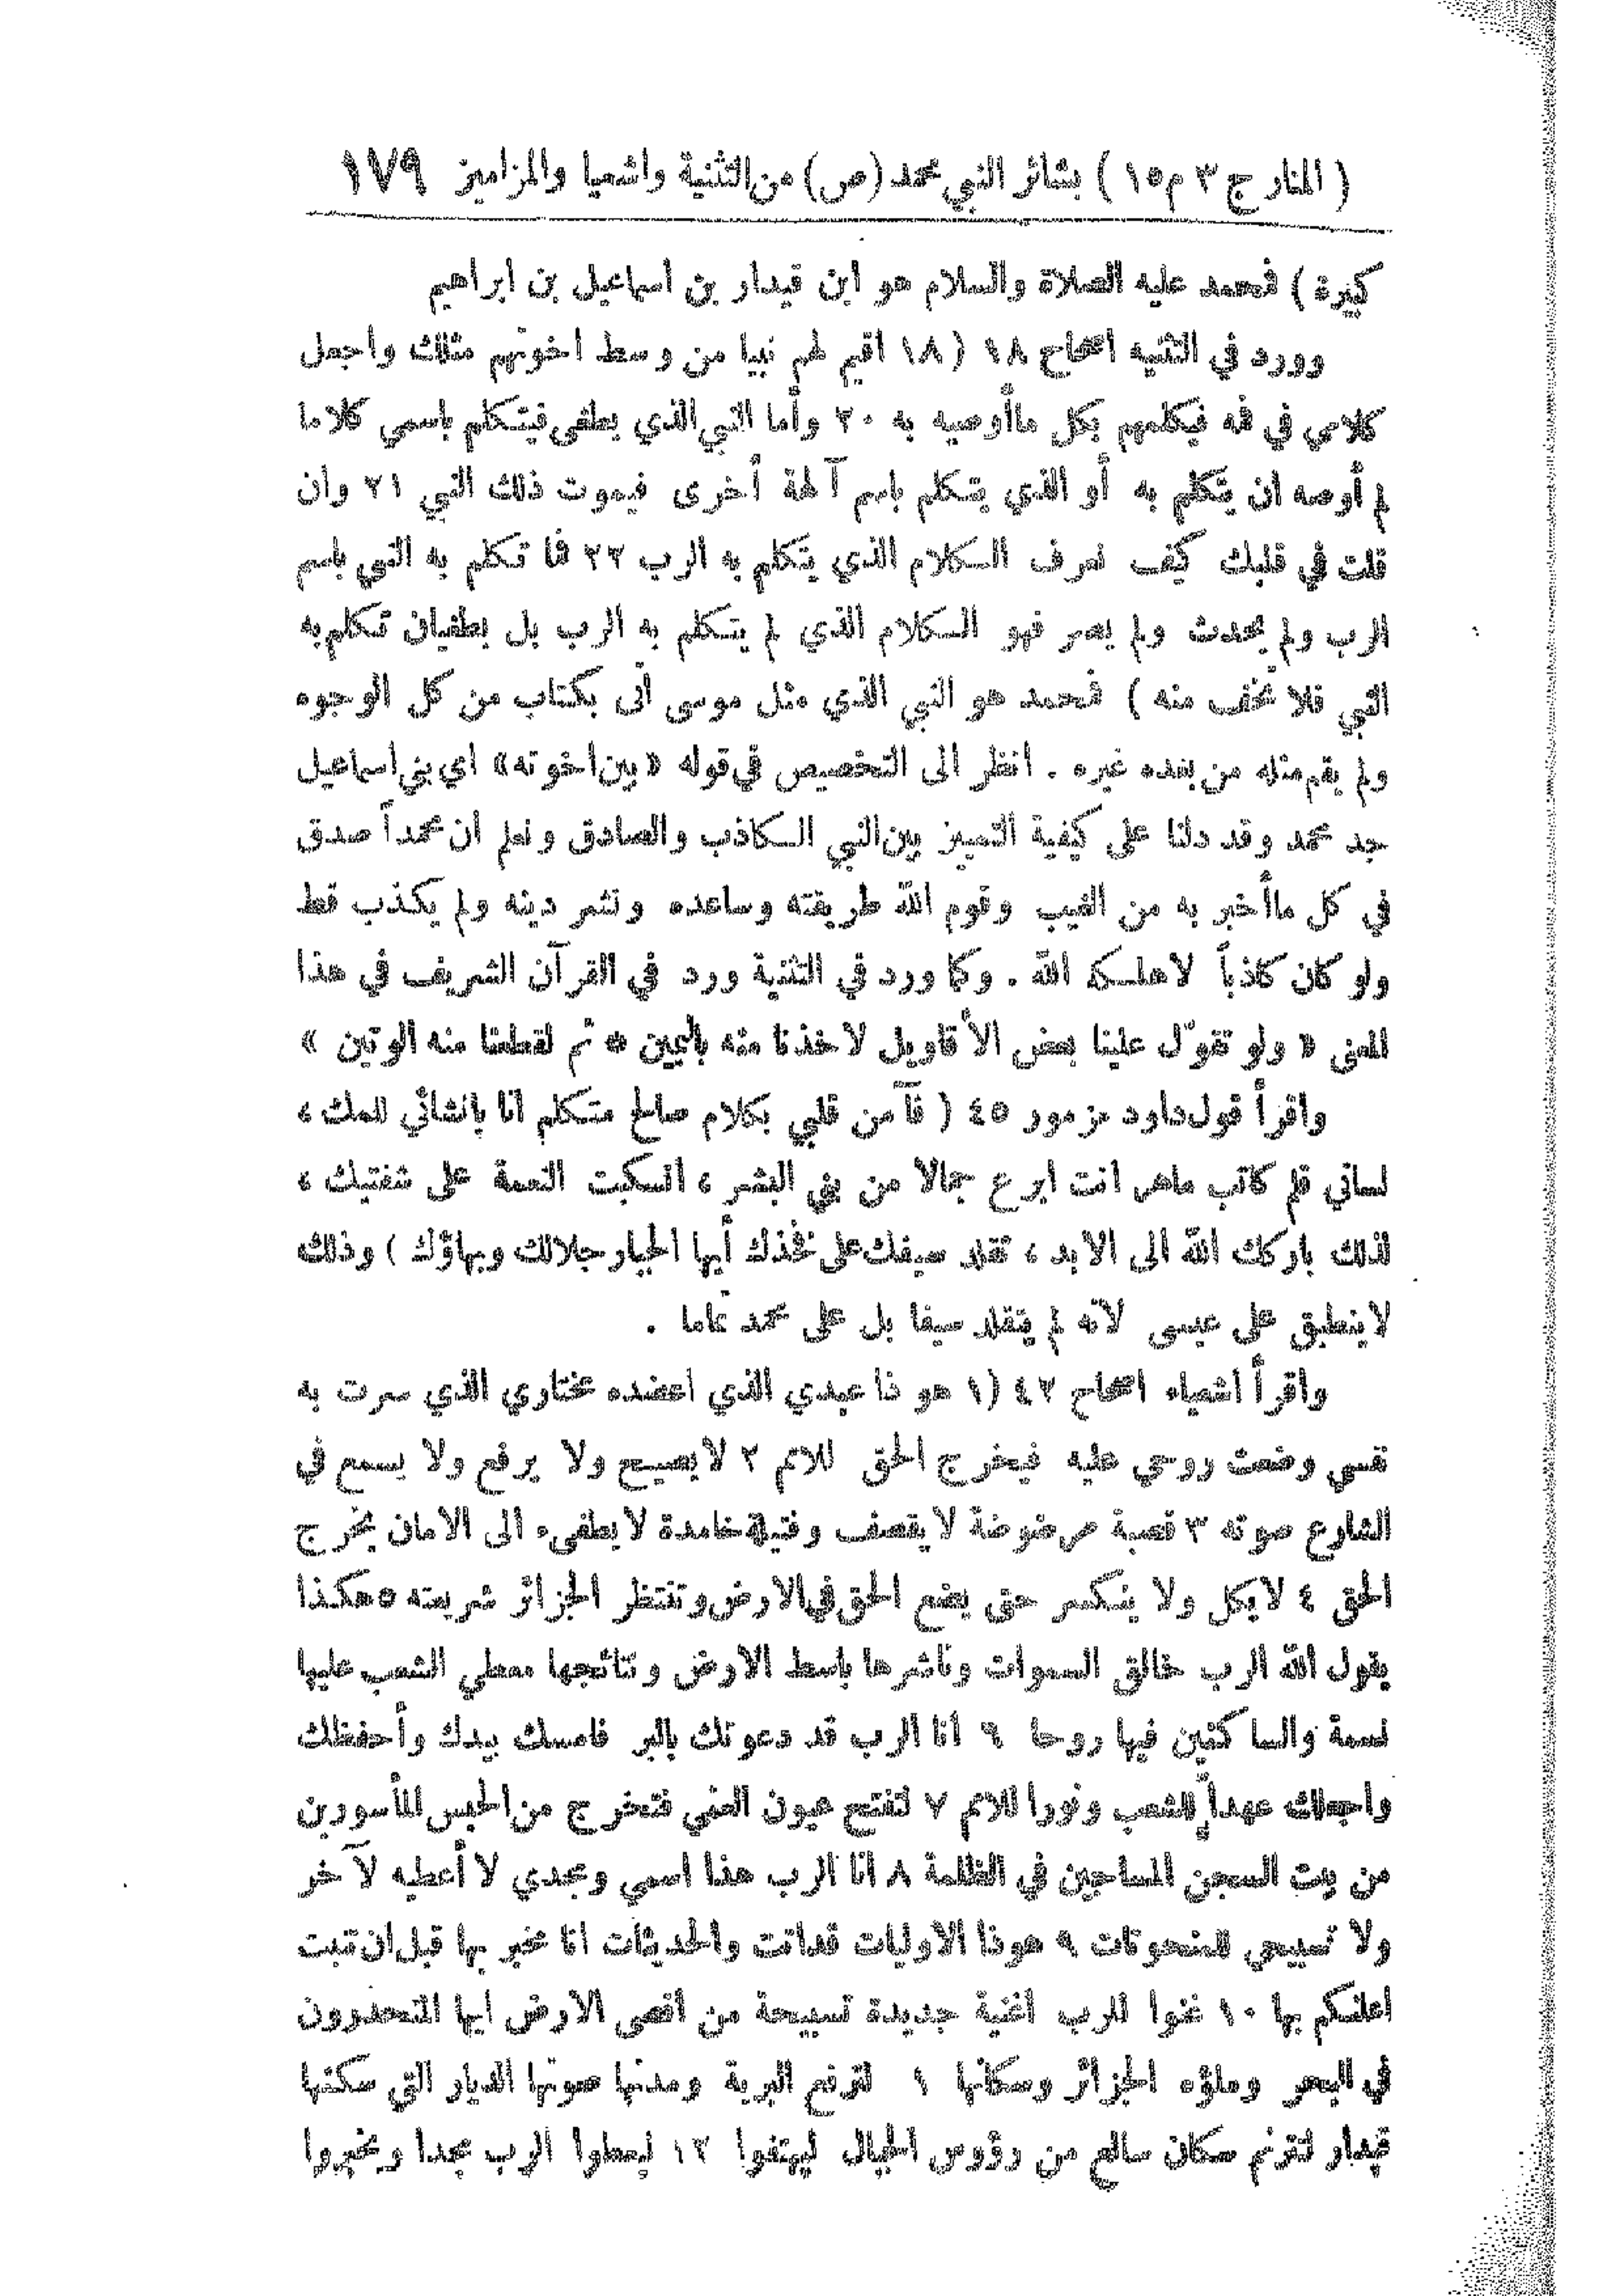 ( المنار ج ٣ م ١٥ ) بشائر النبي محمد (ص) من التثنية واشعيا والمزامير ١٧٩
كبيرة ) فمحمد عليه الصلاة والسلام هو ابن قيدار بن اسماعيل بن ابراهيم
وورد في التثنيه اصحاح ١٨ (١٨ اقيم لهم نبيا من وسط اخوتهم مثلك واجعل
كلامي في فمه فيكلمهم بكل ماأوصيه به ٢٠ وأما النبي الذي يطغى فيتكلم باسمي كلاما
لم أوصه ان يتكلم به أو الذي يتكلم باسم آلهة أخرى فيموت ذلك النبي ٢١ وان
قلت في قلبك كيف نعرف الكلام الذي يتكلم به الرب ٢٢ فما تكلم به النبي باسم
الرب ولم يحدث ولم يصر فهو الكلام الذي لم يتكلم به الرب بل بطغيان تكلم به
النبي فلا تخف منه ) فمحمد هو النبي الذي مثل موسى أتى بكتاب من كل الوجوه
ولم يقم مثله من بعده غيره . انظر الى التخصيص في قوله «بين اخوته» اي بني اسماعيل
جد محمد وقد دلنا على كيفية التمييز بين النبي الكاذب والصادق ونعلم ان محمداً صدق
في كل ماأخبر به من الغيب وقوم الله طريقته وساعده ونشر دينه ولم يكذب قط
ولو كان كاذباً لاهلكه الله . وكما ورد في التثنية ورد في القرآن الشريف في هذا
المعنى « ولو تقوّل علينا بعض الأقاويل لاخذنا منه باليمين * ثم لقطعنا منه الوتين »
واقرأ قول داود مزمور ٤٥ ( فآمن قلبي بكلام صالح متكلم انا بانشائي للملك ،
لساني قلم كاتب ماهر انت ابرع جمالا من بني البشر ، انسكبت النعمة على شفتيك ،
لذلك باركك الله الى الابد ، تقلد سيفك على فخذك أيها الجبار جلالك وبهاؤك ) وذلك
لاينطبق على عيسى لانه لم يتقلد سيفا بل على محمد تماما .
واقرأ اشعياء اصحاح ٤٢ (١ هو ذا عبدي الذي اعضده مختاري الذي سرت به
نفسي وضعت روحي عليه فيخرج الحق للامم ٢ لايصيح ولا يرفع ولا يسمع في
الشارع صوته ٣ قصبة مرضوضة لايقصف وفتيلة خامدة لايطفىء الى الامان يخرج
الحق ٤ لايكل ولا ينكسر حتى يضع الحق في الارض وتنتظر الجزائر شريعته ٥ هكذا
يقول الله الرب خالق السموات وناشرها باسط الارض ونتائجها معطي الشعب عليها
نسمة والساكنين فيها روحا ٦ انا الرب قد دعوتك بالبر فامسك بيدك وأحفظك
واجعلك عهداً للشعب ونورا للامم ٧ لتفتح عيون العمي فتخرج من الحبس المأسورين
من بيت السجن المساجين في الظلمة ٨ انا الرب هذا اسمي ومجدي لا أعطيه لآخر
ولا تسبيحي للمنحوتات ٩ هوذا الاوليات قد اتت والحديثات انا مخبر بها قبل ان تنبت
اعلمكم بها ١٠ غنوا للرب اغنية جديدة تسبيحة من اقصى الارض ايها المنحدرون
في البحر وملؤه الجزائر وسكانها ١ لترفع البرية ومدنها صوتها الديار التي سكنتها
قيدار لتترنم سكان سالع من رؤوس الجبال ليهتفوا ١٢ ليعطوا الرب مجدا ويخبروا